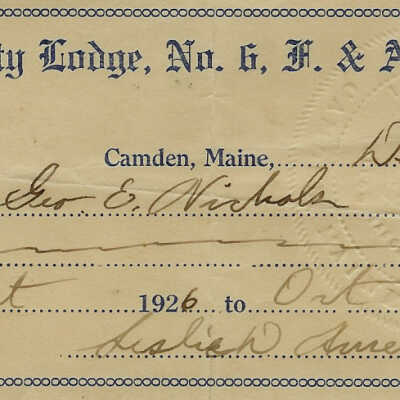 ty Lodge, No. 6, F. & A
Camden, Maine, D
Geo. E. Nichols
t 1926 to Oct
Leslie D Ames